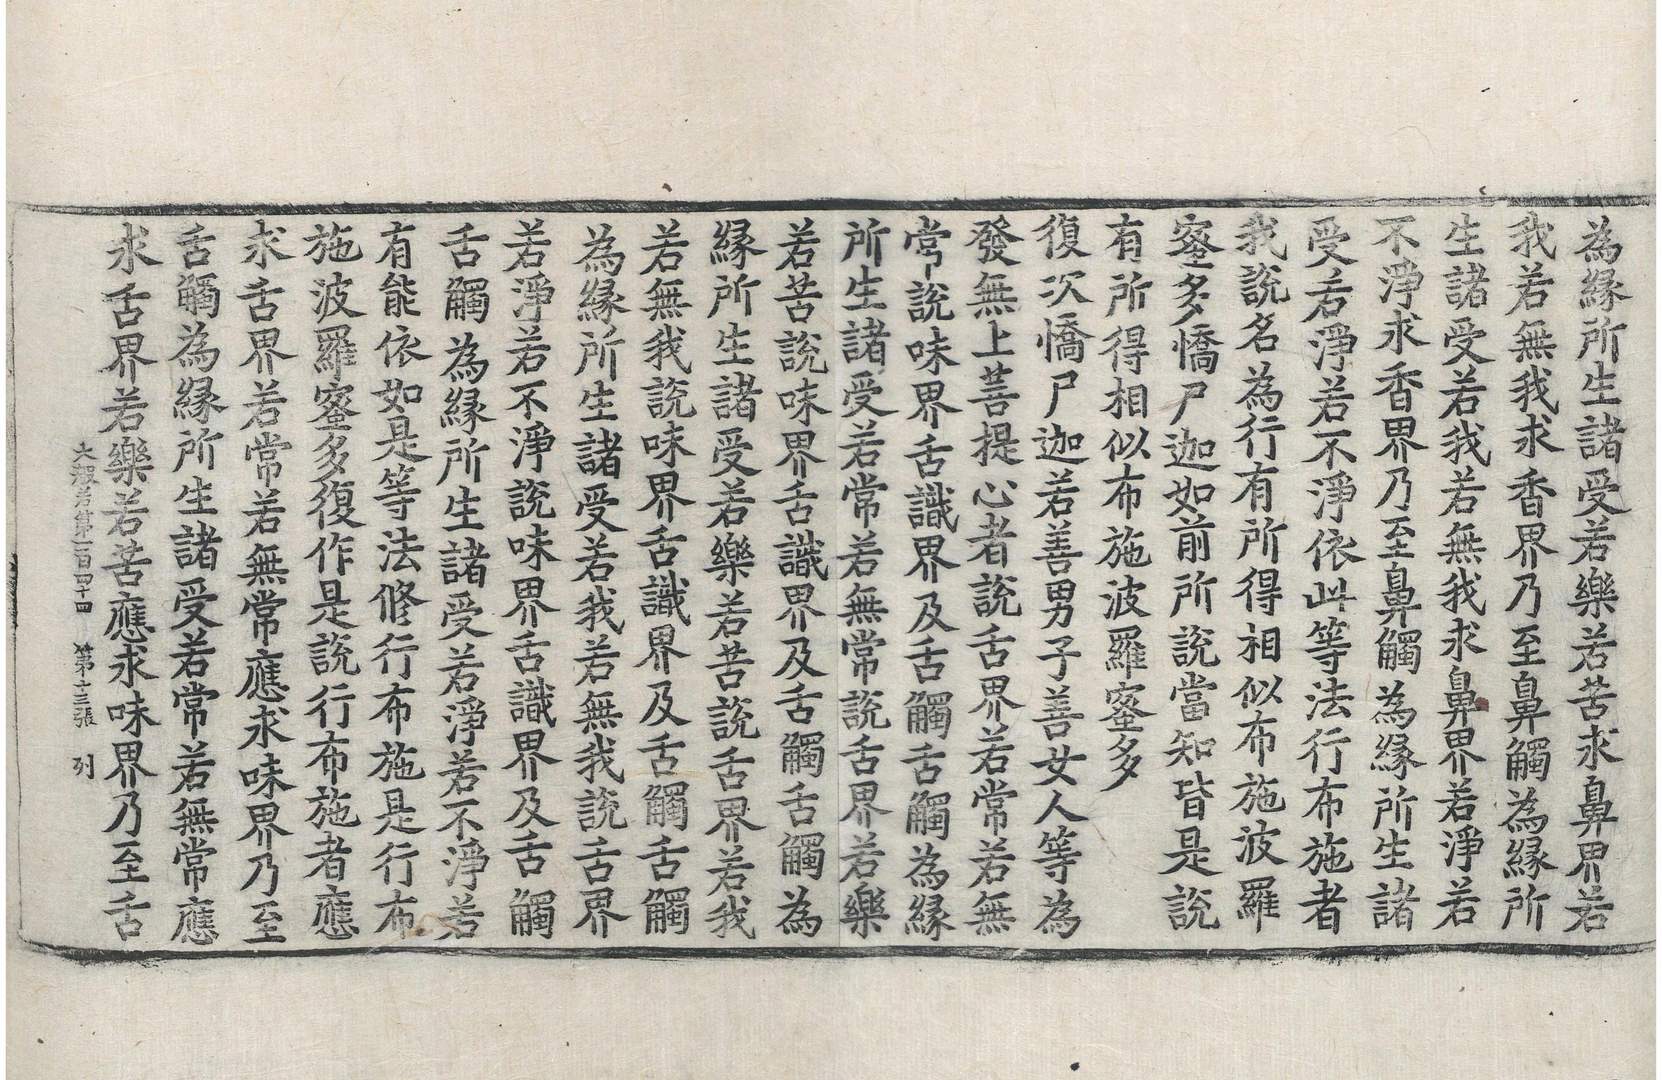 為緣所生諸受若樂若苦求鼻界若
我若無我求香界乃至鼻觸為緣所
生諸受若我若無我求鼻界若淨若
不淨求香界乃至鼻觸為緣所生諸
受若淨若不淨依此等法行布施者
我說名為行有所得相似布施波羅
蜜多憍尸迦如前所說當知皆是說
有所得相似布施波羅蜜多
復次憍尸迦若善男子善女人等為
發無上菩提心者說舌界若常若無
常說味界舌識界及舌觸舌觸為緣
所生諸受若常若無常說舌界若樂
若苦說味界舌識界及舌觸舌觸為
緣所生諸受若樂若苦說舌界若我
若無我說味界舌識界及舌觸舌觸
為緣所生諸受若我若無我說舌界
若淨若不淨說味界舌識界及舌觸
舌觸為緣所生諸受若淨若不淨若
有能依如是等法修行布施是行布
施波羅蜜多復作是說行布施者應
求舌界若常若無常應求味界乃至
舌觸為緣所生諸受若常若無常應
求舌界若樂若苦應求味界乃至舌
大般若第一百四十四 第十三張 列